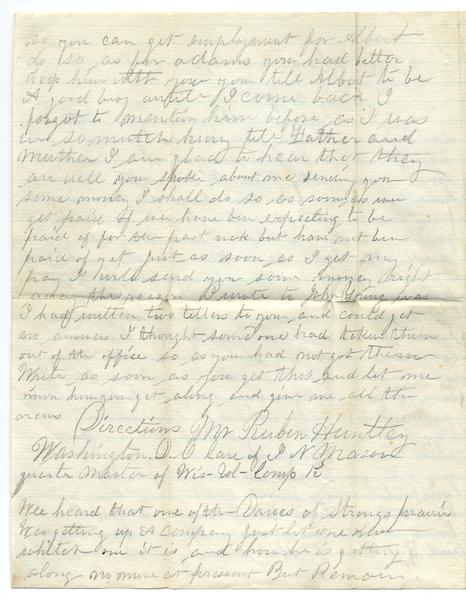 as you can get employment for Albert
do so as for adams you had better
keep him with you you tell Albert to be
A good boy untill I come back I
forgot to mention him before as I was
in so mutch hury tell Father and
Muther I am glad to hear that they
are well you spoke about me sending you
some money I shall do so as soon as we
get paid of we have ben expecting to be
paid of for the past but have not ben
paid of yet just as soon as I get my
pay I will send you some money right
away the reason I wrote to John Young was
I had written two letters to you and could get
no answer I thought some one had taken them
out of the office so as you had not got them
Write as soon as you get this and let me
know how you get along and give me all the
news
Directions Mr Reuben Huntley
Washington. D. C Care of I N Mason
quarter Master of Wis- Vol- Comp K
Wee heard that one of the Danies of Strongs prairie
was getting up a company just let me know
whitch one it is and how he is getting
along no more at pressent But Remain